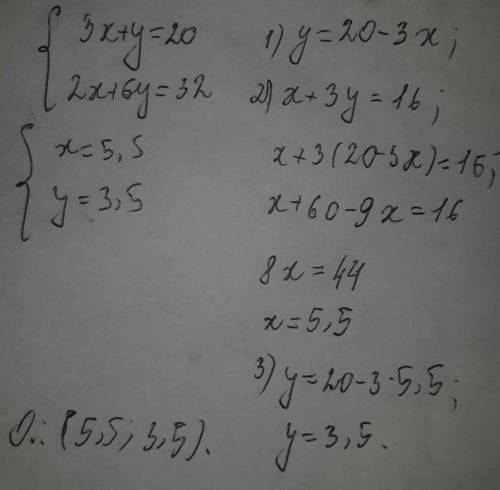 3x+y=20
2x+6y=32
x=5,5
y=3,5
1) y=20-3x;
2) x+3y=16;
x+3(20-3x)=16;
x+60-9x=16
8x=44
x=5,5
3) y=20-3·5,5;
y=3,5.
О.: (5,5; 3,5).